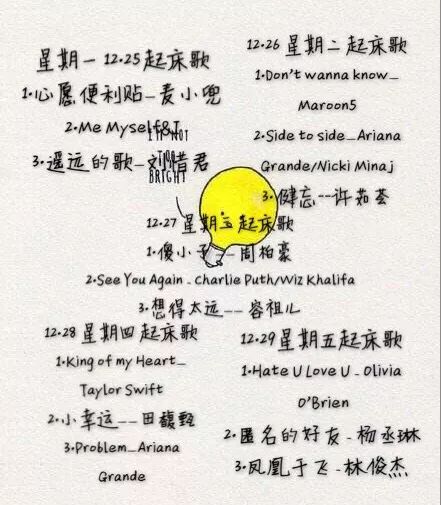 星期一 12.25起床歌
1.心愿便利贴_麦小兜
2.Me Myself&I
3.遥远的歌_刘惜君
12.26 星期二起床歌
1.Don't wanna know_
Maroon5
2.Side to side_Ariana
Grande/Nicki Minaj
3.健忘--许茹芸
I'M NOT
BRIGHT
12.27 星期三起床歌
1.傻小子--周柏豪
2.See You Again_Charlie Puth/Wiz Khalifa
3.想得太远__容祖儿
12.28 星期四起床歌
1.King of my Heart_
Taylor Swift
2.小幸运__田馥甄
3.Problem_Ariana
Grande
12.29 星期五起床歌
1.Hate U Love U_Olivia
O'Brien
2.匿名的好友_杨丞琳
3.凤凰于飞_林俊杰